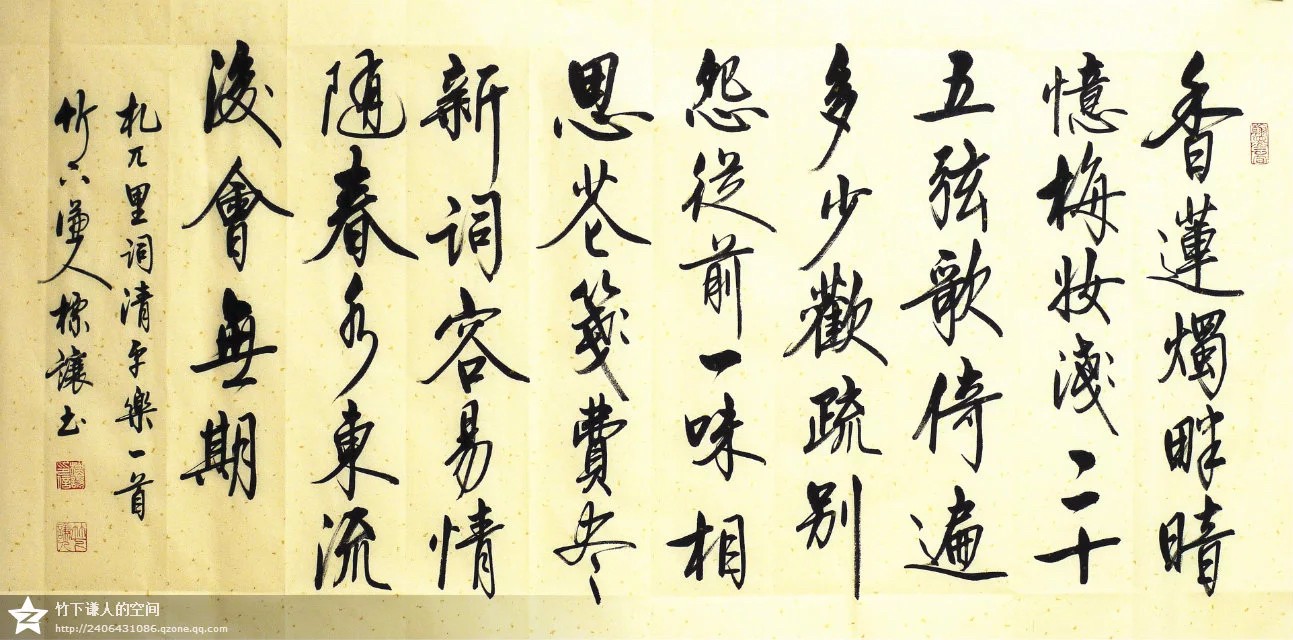 香蓮燭畔暗
憶梅妝淺二十
五弦歌倚遍
多少歡疏别
怨從前一味相
思花箋費尽
新詞容易情
随春水東流
後會無期
札兀里詞清平樂一首
竹下谦人標讓书
竹下谦人的空间
http://2406431086.qzone.qq.com